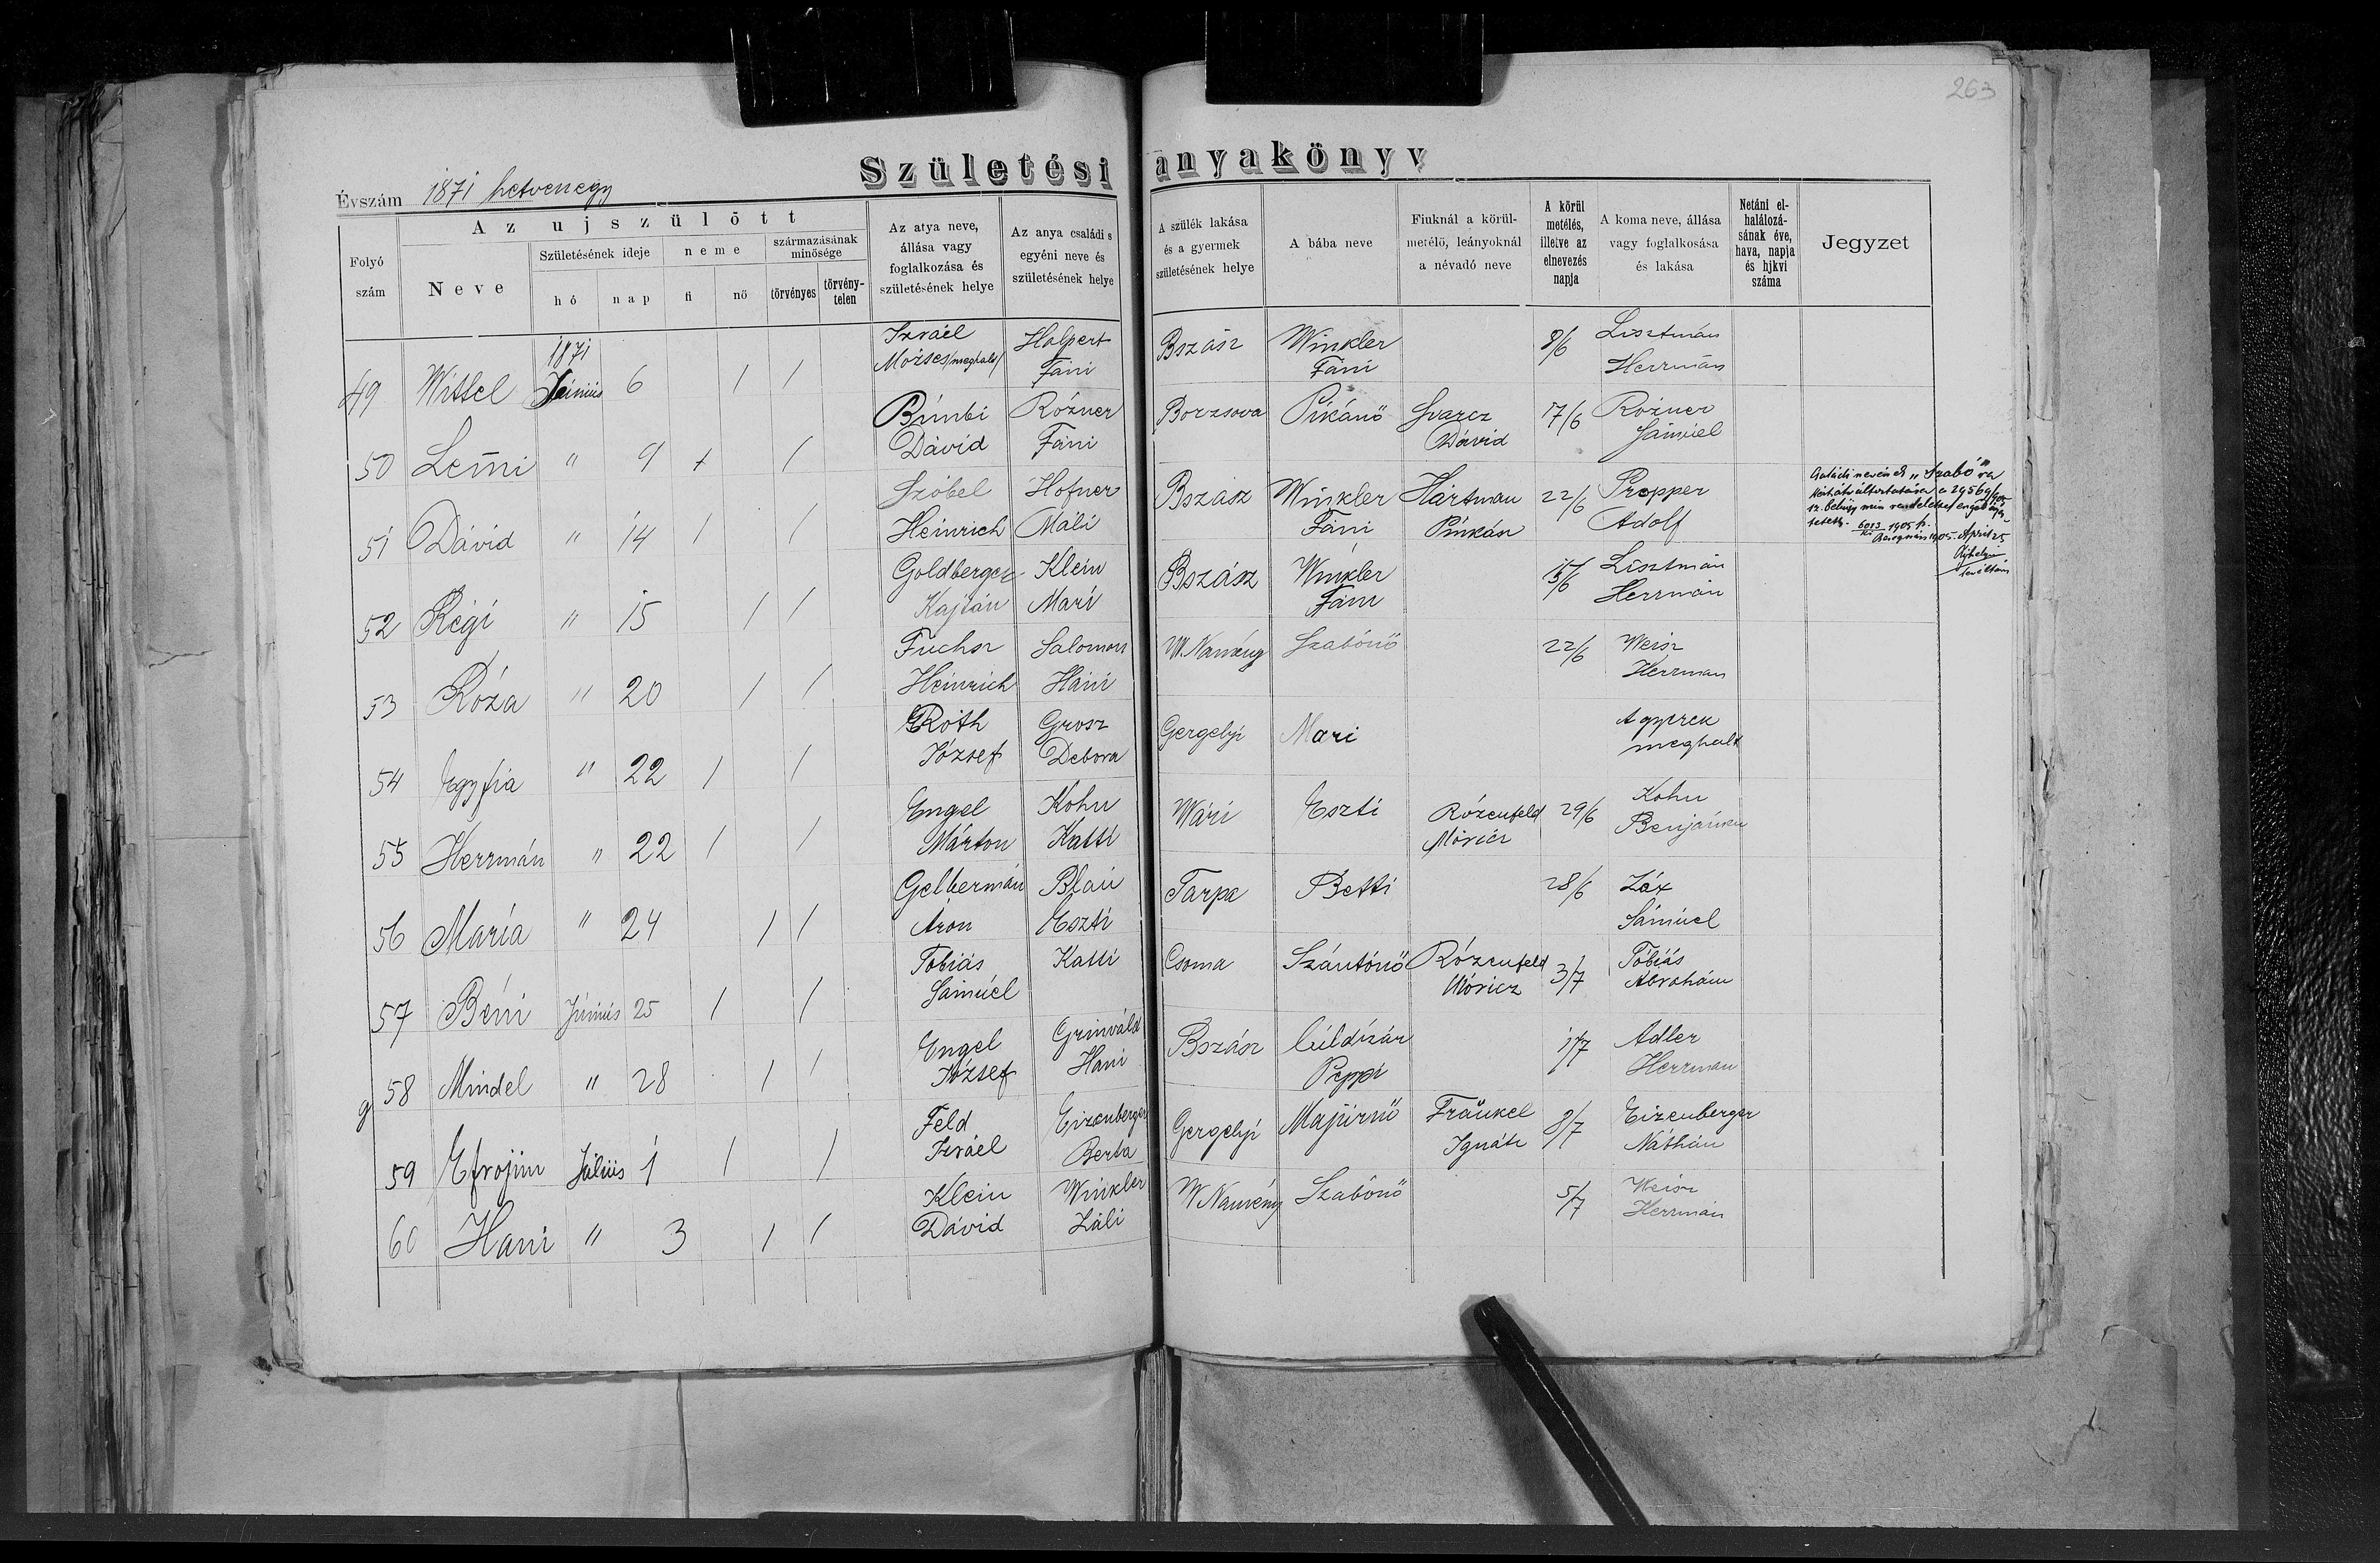 263
Születési anyakönyv
Évszám 1871 hetvenegy
Folyó szám
Az ujszülött
Neve
Születésének ideje
hó
nap
neme
fi
nő
származásának minősége
törvényes
törvénytelen
Az atya neve, állása vagy foglalkozása és születésének helye
Az anya családi s egyéni neve és születésének helye
A szülék lakása és a gyermek születésének helye
A bába neve
Fiuknál a körülmetélő, leányoknál a névadó neve
A körül metélés, illetve az elnevezés napja
A koma neve, állása vagy foglalkosása és lakása
Netáni elhalálozásának éve, hava, napja és hjkvi száma
Jegyzet
49 Wittel 1871 Június 6 / / Izráel Mózses /meghalt/ Halpert Fáni Bszász Winkler Fáni 8/6 Lisztmán Herrmán
50 Lemi " 9 + / Bimbi Dávid Rózner Fáni Borzsova Pikánő Svarcz Dávid 17/6 Rozner Sámuel
51 Dávid " 14 / / Szóbel Heinrich Hofner Máli Bszász Winkler Fáni Hártman Pinkász 22/6 Propper Adolf
Családi nevének "Szabó"ra
1905. April 25
52 Régi " 15 / / Goldberger Kajtán Klein Mari Bszász Winkler Fáni 17/6 Lisztmán Herrmán
53 Róza " 20 / / Fuchsz Heinrich Salomon Háni W. Namény Szabónő 22/6 Weisz Herrman
54 Egy fia " 22 / / Róth József Grosz Debora Gergelyi Mari A gyerek meghalt
55 Herrmán " 22 / / Engel Márton Kohn Katti Wári Eszti Rózenfeld Móricz 29/6 Kohn Benjámin
56 Maria " 24 / / Gelbermán Áron Blau Eszti Tarpa Betti 28/6 Záx Sámuel
57 Béni Június 25 / / Tobiás Sámuel Katti Csoma Szántónő Rózenfeld Móricz 3/7 Tóbiás Abrahám
58 Mindel " 28 / / Engel József Grinváld Hani Bszász Peppi 1/7 Adler Herrman
59 Efrojim Július 1 / / Feld Izráel Eizenberger Berta Gergelyi Majirnő Fränkel Ignátz 8/7 Eizenberger Náthán
60 Hani " 3 / / Klein Dávid Winkler Záli W Namény Szabónő 5/7 Weisz Herrmán